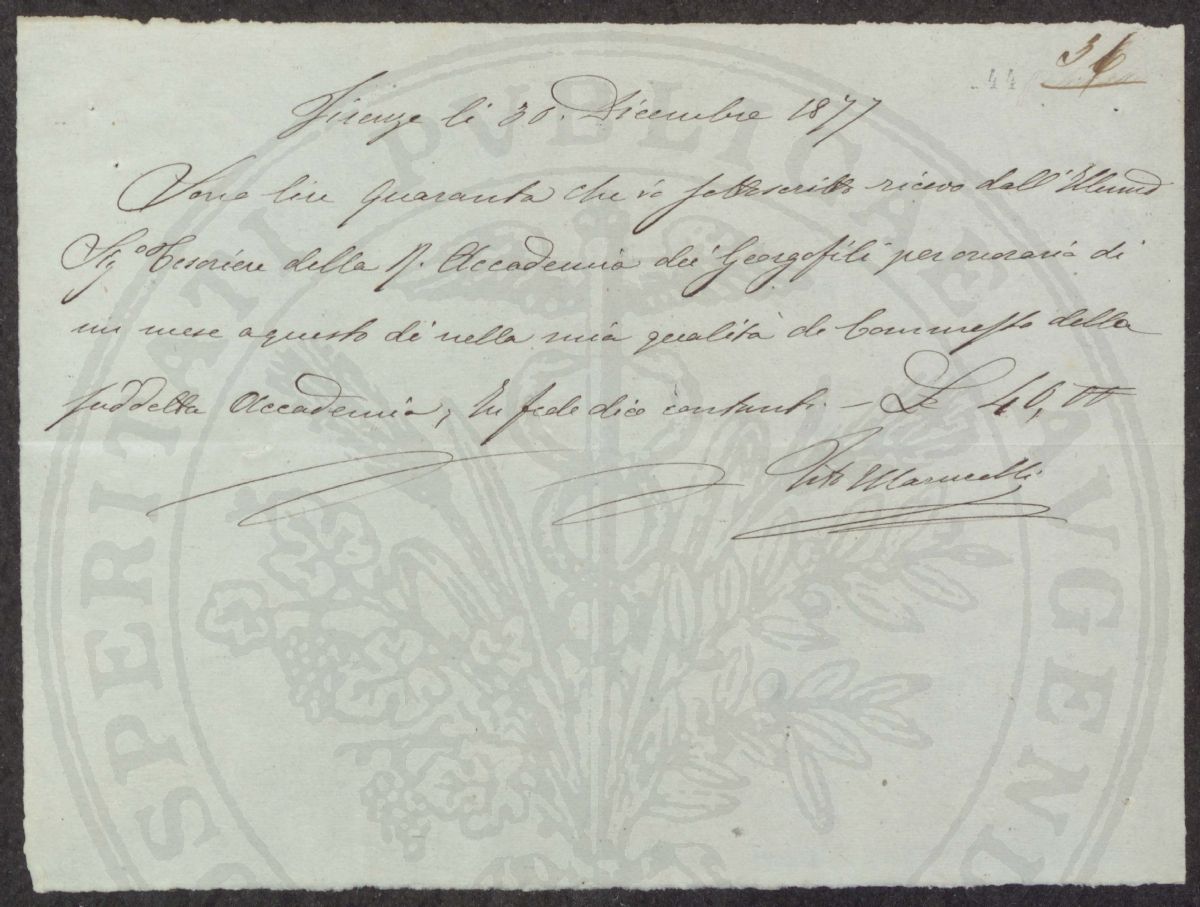 36
44
Firenze li 30. Dicembre 1877
Sono lire quaranta che io sottoscritto ricevo dall'Illmo
Sigo Tesoriere della R. Accademia dei Georgofili per onorario di
un mese a questo dì nella mia qualità di Commesso della
suddetta Accademia, In fede dico contanti – L 40,00
Tito Marucelli
PROSPERITATI PVBLICAE AVGENDAE